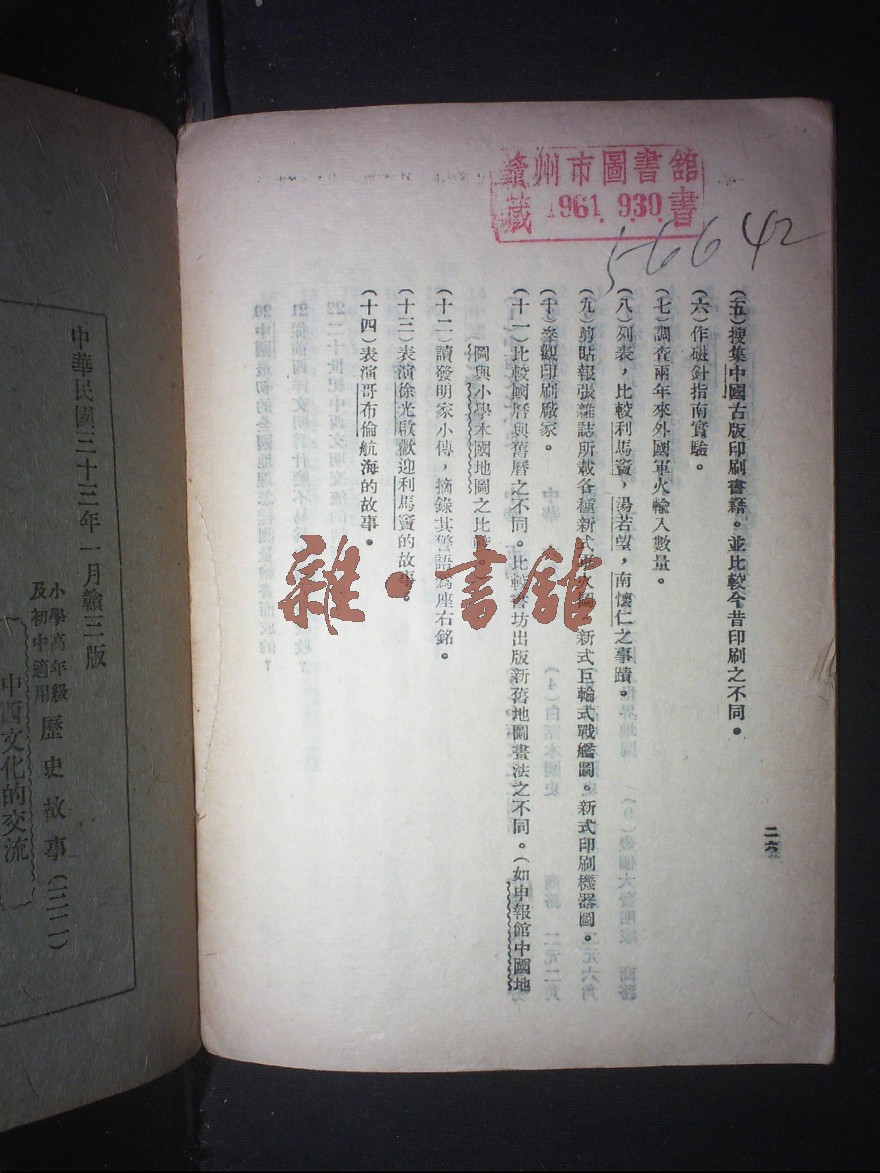 贛州市圖書館
藏 1961.9.30. 書
56642
（五）搜集中國古版印刷書籍。並比較今昔印刷之不同。
（六）作磁針指南實驗。
（七）調査兩年來外國軍火輸入數量。
（八）列表，比較利馬竇，湯若望，南懷仁之事蹟。
（九）剪貼報張雜誌所載各種新式軍火圖。新式巨輪式戰艦圖。新式印刷機器圖。
（十）參觀印刷廠家。
（十一）比較國曆與舊曆之不同。比較書坊出版新舊地圖畫法之不同。（如申報館中國地
圖與小學本國地圖之比較。）
（十二）讀發明家小傳，摘錄其警語爲座右銘。
（十三）表演徐光啟歡迎利馬竇的故事。
（十四）表演哥布倫航海的故事。
二六
雜·書館
中華民國三十三年一月贛三版
小學高年級
及初中適用
歷史故事（三二）
中西文化的交流